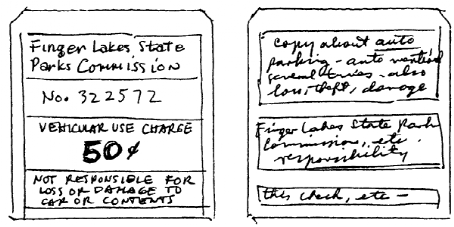 Finger Lakes State
Parks Commission
No. 322572
VEHICULAR USE CHARGE
50¢
NOT RESPONSIBLE FOR
LOSS OR DAMAGE TO
CAR OR CONTENTS
copy about auto
parking - auto mention
several times - also
loss, theft, damage
Finger Lakes State Park
Commission, etc.
responsibility
this check, etc -